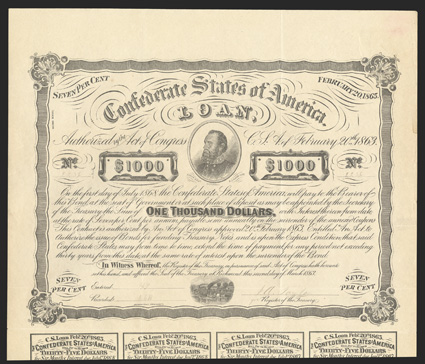 SEVEN PER CENT
FEBRUARY 20, 1863.
Confederate States of America.
LOAN,
Authorized by the Act of Congress C.S.A. of February 20th 1863.
No
$1000
$1000
No
On the first day of July 1868, the Confederate States of America, will pay to the Bearer of
this Bond, at the Seat of Government or at such place of deposit as may be appointed by the Secretary
of the Treasury the Sum of ONE THOUSAND DOLLARS, with Interest thereon from date
at the rate of Seven per Cent per annum
This Contract is authorized by An Act of Congress approved 20th February 1863, Entitled An Act to
Authorize the issue of Bonds for funding Treasury Notes and is upon the Express Condition that said
Confederate States may from time to time extend the time of payment for any period not exceeding
thirty years from this date at the same rate of interest upon the surrender of this Bond.
In Witness Whereof, the Register of the Treasury in pursuance of said Act of Congress hath hereunto
set his hand and affixed the Seal of the Treasury at Richmond this second day of March 1863.
SEVEN PER CENT
Entered
Recorded
Register of the Treasury.
SEVEN PER CENT
C.S. Loan Feb. 20th 1863.
C.S. Loan Feb. 20th 1863.
C.S. Loan Feb. 20th 1863.
C.S. Loan Feb. 20th 1863.
The CONFEDERATE STATES of AMERICA
The CONFEDERATE STATES of AMERICA
The CONFEDERATE STATES of AMERICA
The CONFEDERATE STATES of AMERICA
THIRTY-FIVE DOLLARS
THIRTY-FIVE DOLLARS
THIRTY-FIVE DOLLARS
THIRTY-FIVE DOLLARS